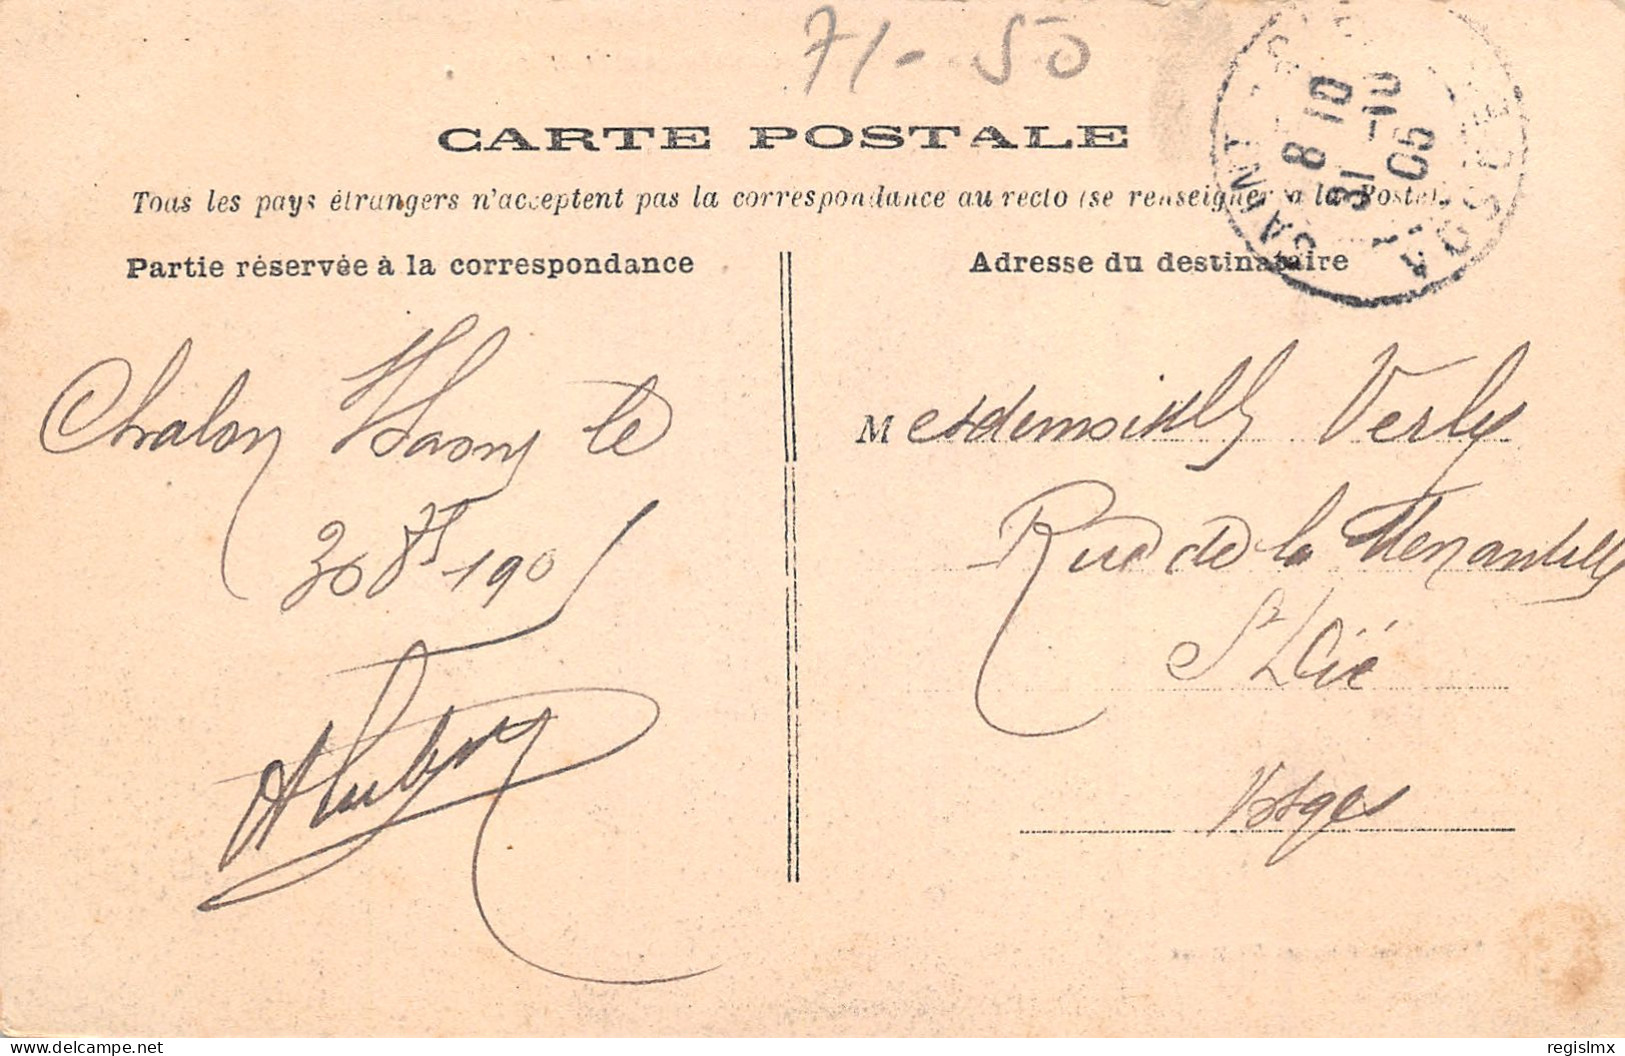 71-50
CARTE POSTALE
Tous les pays étrangers n'acceptent pas la correspondance au recto (se renseigner à la Poste).
Partie réservée à la correspondance
Adresse du destinataire
SAINT-DIÉ VOSGES
8 10
31 -10
05
Chalon s/Saone le
30 8bre 1905
Mesdemoiselles Verly
Rue de la Menantille
St Dié
Vosges
delcampe.net
regislmx